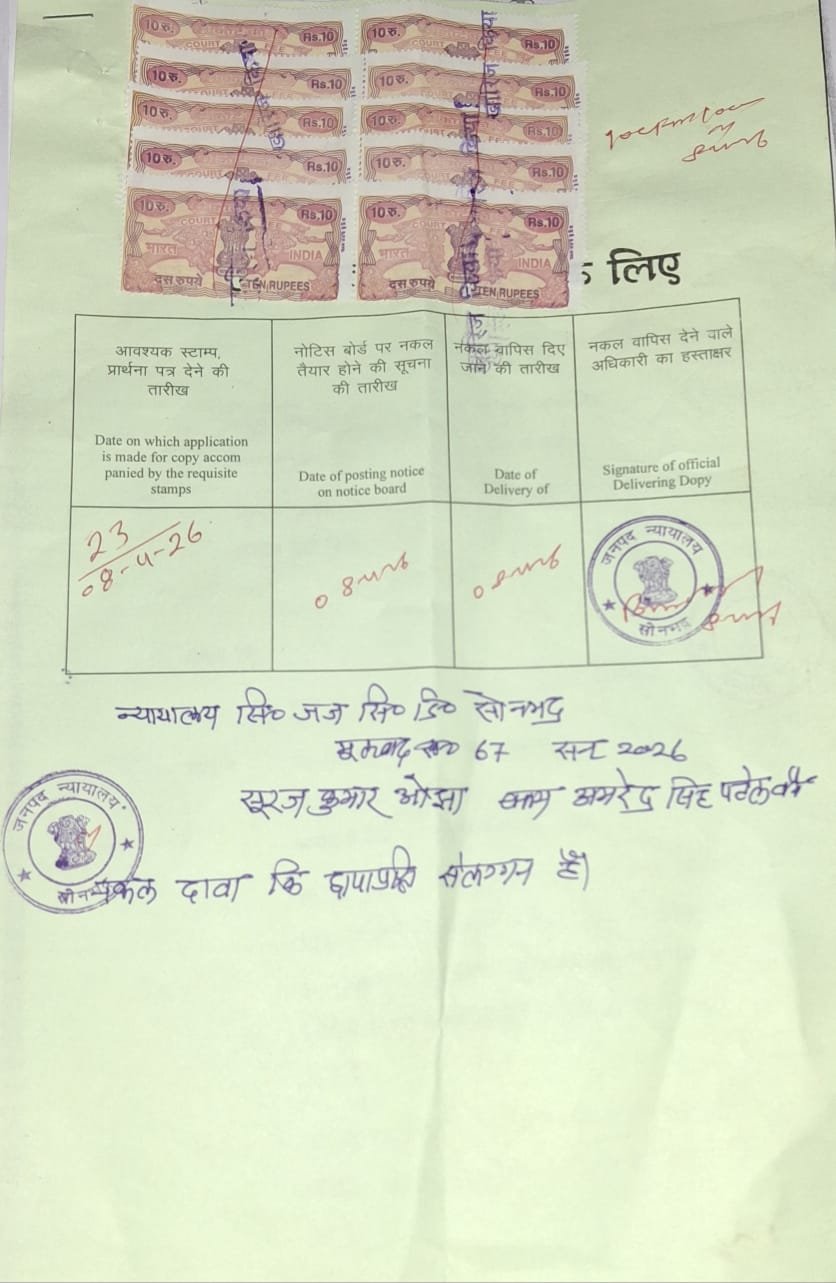 10 रु. Rs.10 10 रु. Rs.10
COURT FEE COURT
10 रु. Rs.10 10 रु. Rs.10
10 रु. Rs.10 10 रु. Rs.10
10 रु. Rs.10 10 रु. Rs.10
10 रु. Rs.10 10 रु. Rs.10
COURT FEE COURT FEE
भारत INDIA भारत INDIA
दस रुपये TEN RUPEES दस रुपये TEN RUPEES
लिए
आवश्यक स्टाम्प,
प्रार्थना पत्र देने की
तारीख
Date on which application
is made for copy accom
panied by the requisite
stamps
नोटिस बोर्ड पर नकल
तैयार होने की सूचना
की तारीख
Date of posting notice
on notice board
नकल वापिस दिए
जाने की तारीख
Date of
Delivery of
नकल वापिस देने वाले
अधिकारी का हस्ताक्षर
Signature of official
Delivering Dopy
23
08-4-26
जनपद न्यायालय
सोनभद्र
न्यायालय सि० जज सि० डि० सोनभद्र
67 सन 2026
सूरज कुमार ओझा बनाम अमरेंद्र सिंह पटेल
जनपद न्यायालय
नकल दावा कि छायाप्रति संलग्गन है।